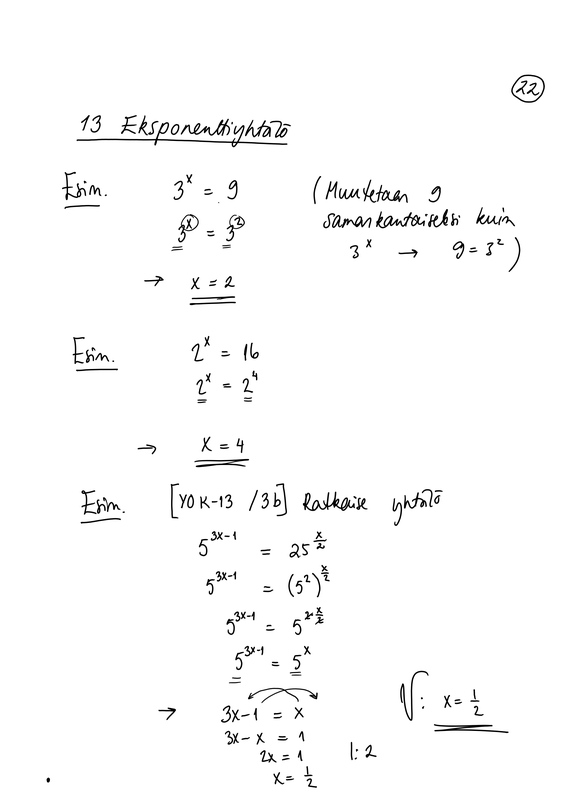 22
13 Eksponenttiyhtälö
Esim. 3^x = 9 (Muutetaan 9
samankantaiseksi kuin
3^x = 3^2 3^x → 9 = 3^2)
→ x = 2
Esim. 2^x = 16
2^x = 2^4
→ x = 4
Esim. [YO K-13 /3b] Ratkaise yhtälö
5^{3x-1} = 25^{x/2}
5^{3x-1} = (5^2)^{x/2}
5^{3x-1} = 5^{2·x/2}
5^{3x-1} = 5^x
→ 3x-1 = x V: x = 1/2
3x - x = 1
2x = 1 |: 2
x = 1/2